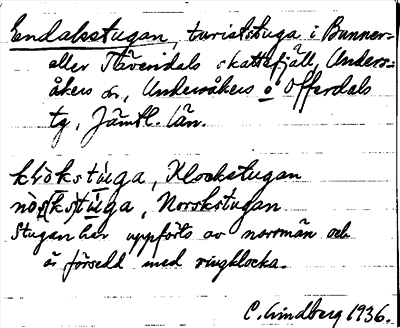 Endalsstugan, turiststuga i Bunner-
eller Tåvendals skattefjäll, Unders-
åkers sn, Undersåkers o Offerdals
tg, Jämtl. län.
klökstuga, Klockstugan
nöʃkstuga, Norskstugan
Stugan har uppförts av norrmän och
är försedd med ringklocka.
C. Lindberg 1936.